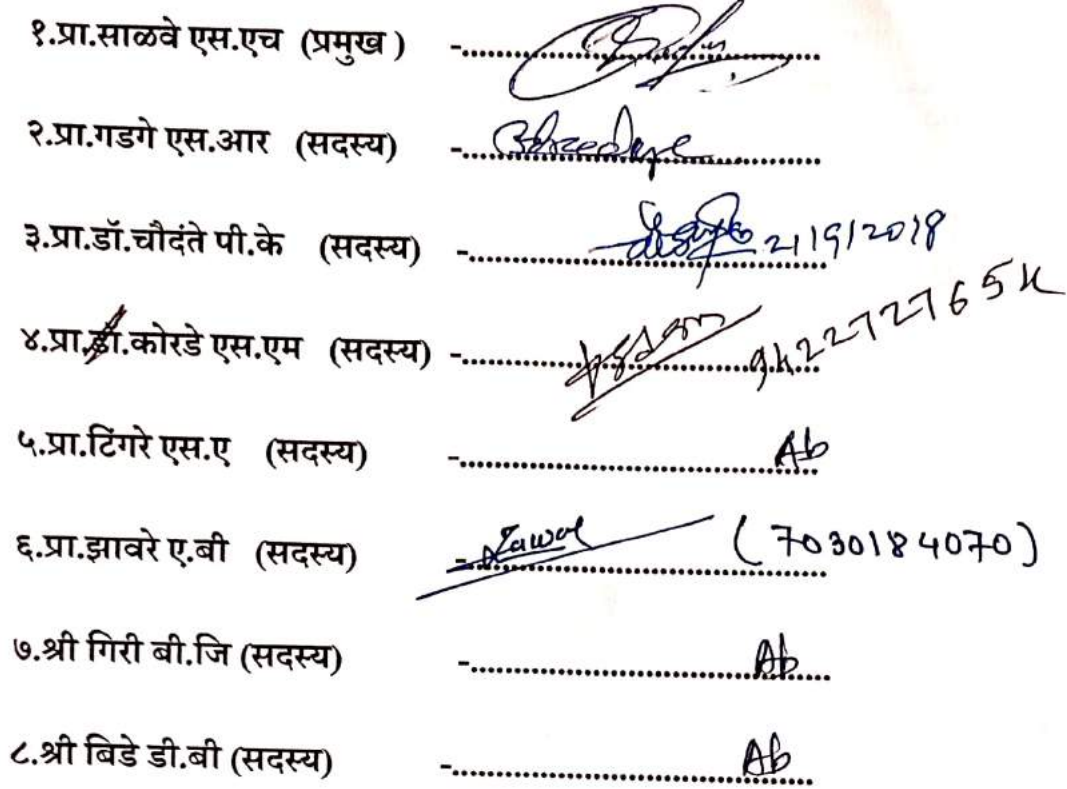 १.प्रा.साळवे एस.एच (प्रमुख ) -....................................
२.प्रा.गडगे एस.आर (सदस्य) -....................................
३.प्रा.डॉ.चौदंते पी.के (सदस्य) -.................................... 21/9/2018
४.प्रा.डॉ.कोरडे एस.एम (सदस्य) -.................................... 9422727654
५.प्रा.टिंगरे एस.ए (सदस्य) -.................................... Ab
६.प्रा.झावरे ए.बी (सदस्य) -.................................... (7030184070)
७.श्री गिरी बी.जि (सदस्य) -.................................... Ab
८.श्री बिडे डी.बी (सदस्य) -.................................... Ab